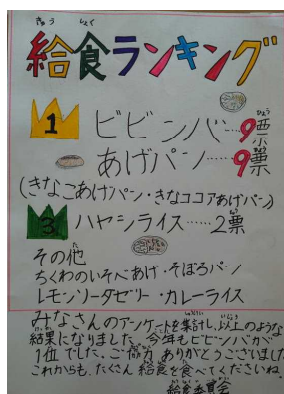 きゅう しょく
給食ランキング
1 ビビンバ…9票
ひょう
あげパン……9票
(きなこあげパン・きなココアあげパン)
3 ハヤシライス……2票
その他
ちくわのいそべあげ・そぼろパン
レモンソーダゼリー・カレーライス
みなさんのアンケートを集計し、以上のような
結果になりました。今年もビビンバが
1位でした。ご協力ありがとうございました
これからも、たくさん給食を食べてくださいね。
給食委員会